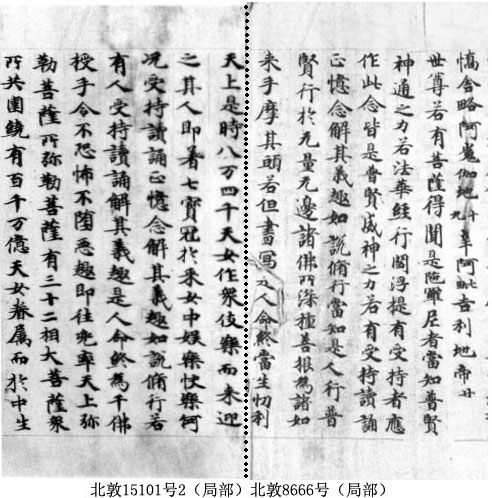 憍舍略阿㝹伽地十九辛阿毗吉利地帝廿
世尊若有菩薩得聞是陁羅尼者當知普賢
神通之力若法華経行閻浮提有受持者應
作此念皆是普賢威神之力若有受持讀誦
正憶念解其義趣如說脩行當知是人行普
賢行於无量无邊諸佛所深種善根為諸如
来手摩其頭若但書寫是人命終當生忉利
天上是時八万四千天女作衆伎樂而来迎
之其人即著七寶冠於采女中娛樂快樂何
况受持讀誦正憶念解其義趣如說脩行若
有人受持讀誦解其義趣是人命終為千佛
授手令不恐怖不堕惡趣即往兜率天上弥
勒菩薩所弥勒菩薩有三十二相大菩薩衆
所共圍繞有百千万億天女眷属而於中生
北敦15101号2（局部）北敦8666号（局部）